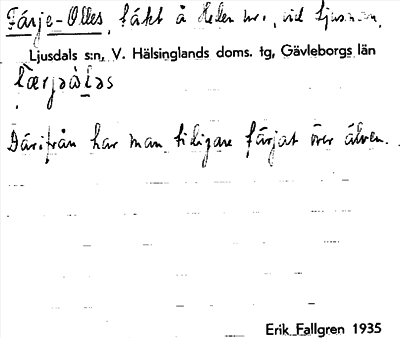 Färje-Olles, täkt å Helen nr 1, vid Ljusnan.
Ljusdals s:n, V. Hälsinglands doms. tg, Gävleborgs län
Därifrån har man tidigare färjat över älven.
Erik Fallgren 1935